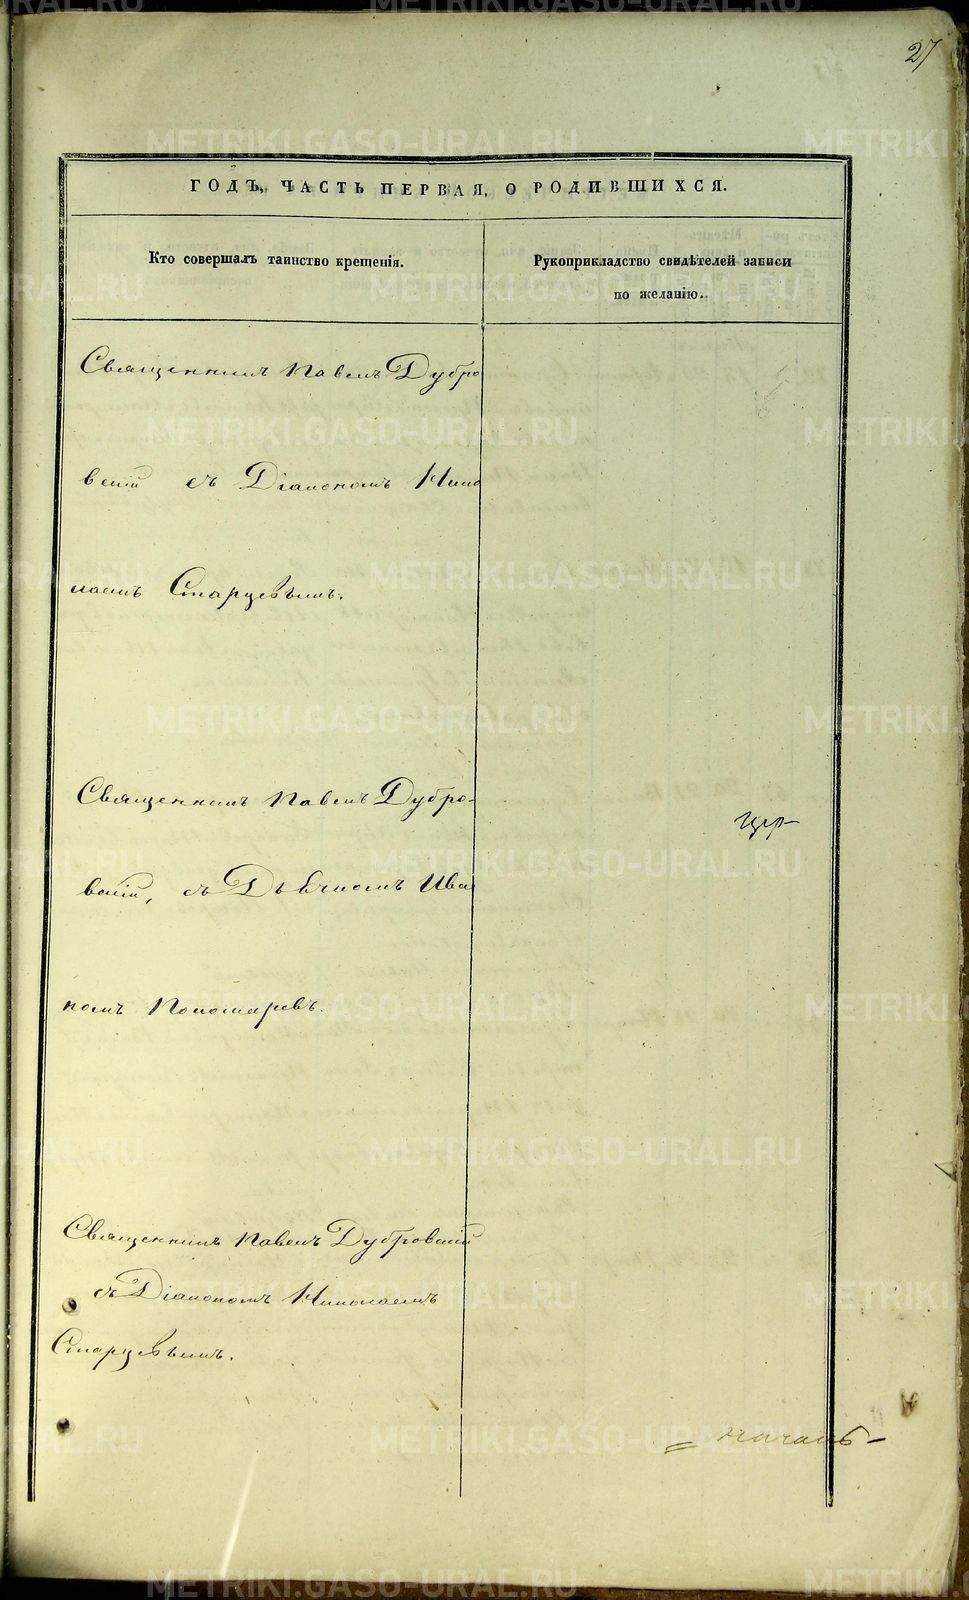 27
ГОДЪ, ЧАСТЬ ПЕРВАЯ, О РОДИВШИХСЯ.
Кто совершалъ таинство крещенія.
Рукоприкладство свидѣтелей записи
по желанію.
Священникъ Павелъ Дубро
вскій съ Діакономъ Нико
лаемъ Старцевымъ.
Священникъ Павелъ Дубро-
вскій, съ Дьячкомъ Ива
номъ Пономаревъ.
Священникъ Павелъ Дубровскій
съ Діакономъ Николаемъ
Старцевымъ.
METRIKI.GASO-URAL.RU